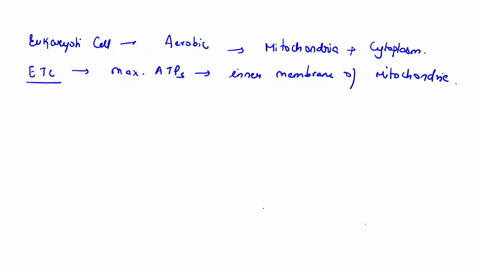 Eukaryoti Cell → Aerobic → Mitochondria + Cytoplasm.
ETC → max. ATPs → inner membrane of Mitochondria.